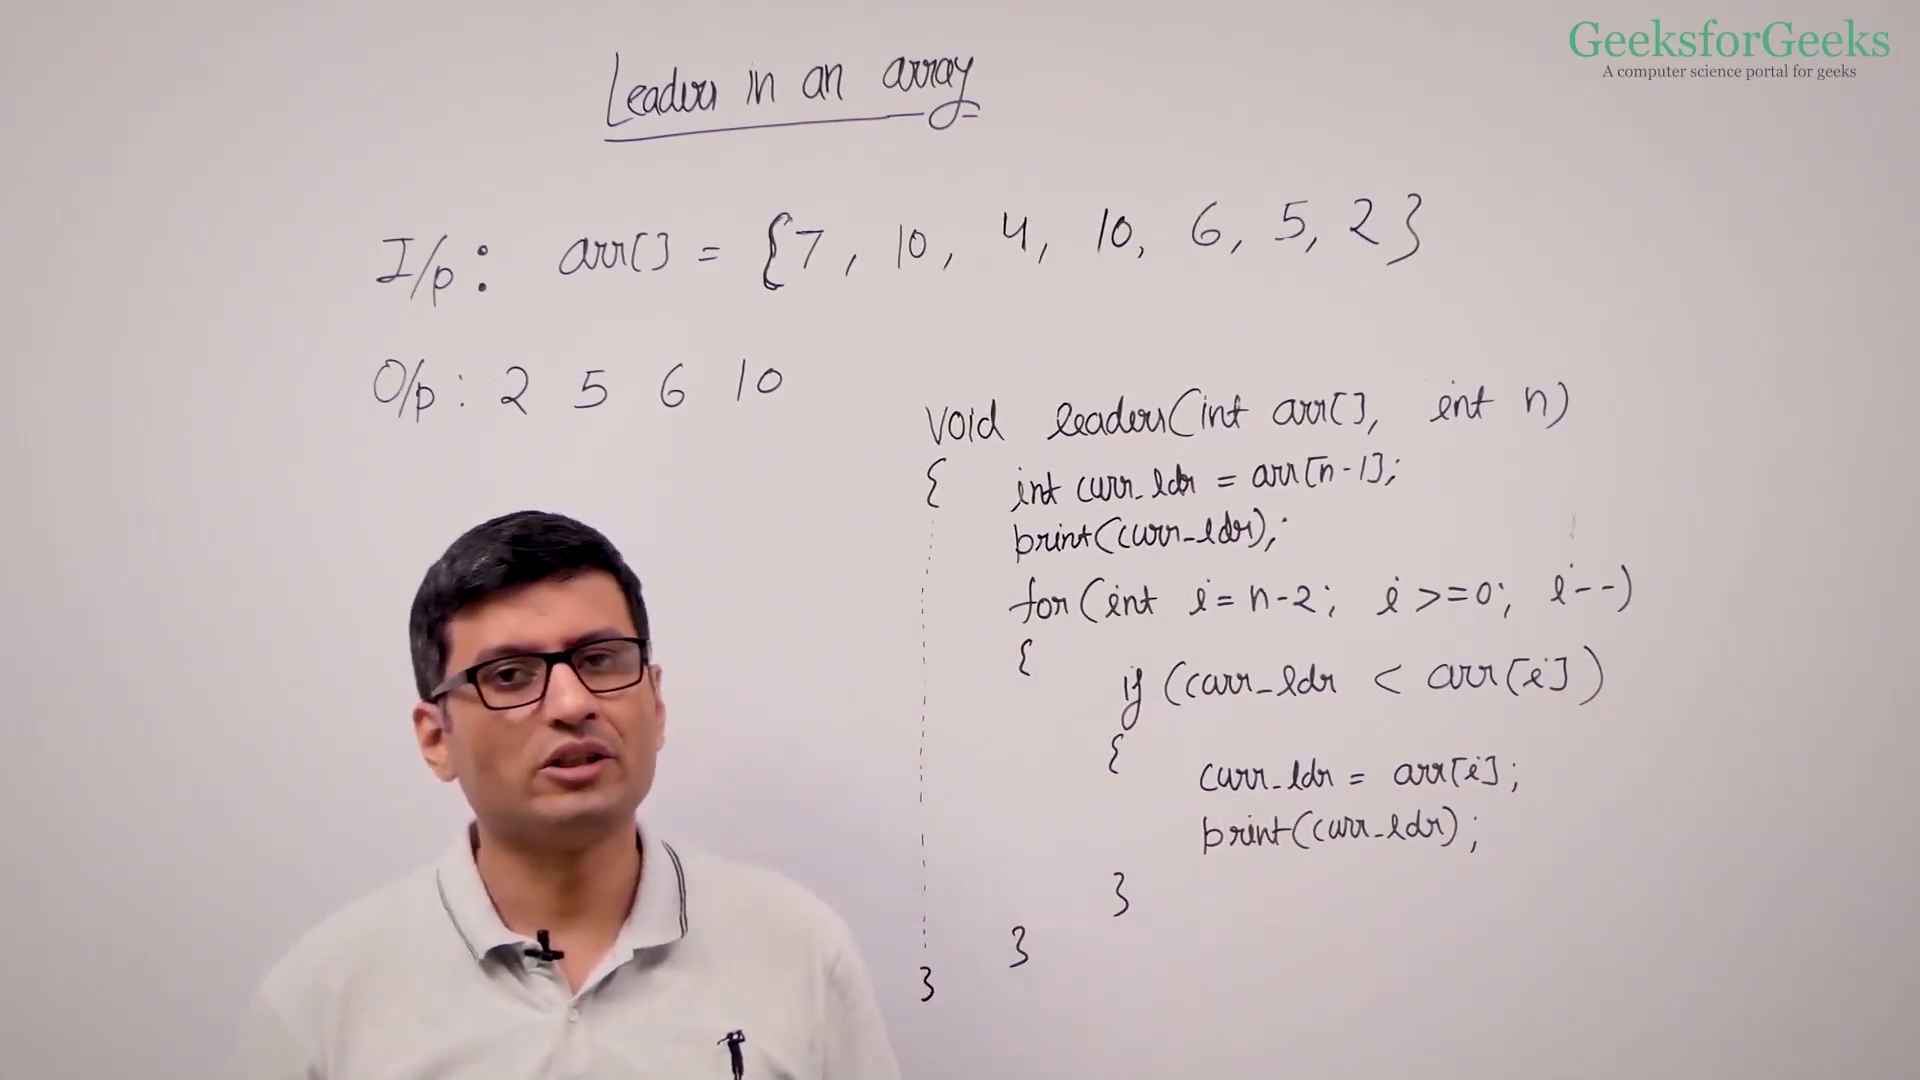 GeeksforGeeks
A computer science portal for geeks
Leaders in an array
I/p : arr[] = {7, 10, 4, 10, 6, 5, 2}
O/p : 2 5 6 10
void leaders(int arr[], int n)
{ int curr_ldr = arr[n-1];
print(curr_ldr);
for(int i=n-2; i>=0; i--)
{
if (curr_ldr < arr[i])
{
curr_ldr = arr[i];
print(curr_ldr);
}
}
}